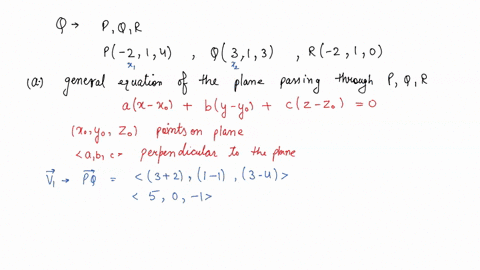 Q → P, Q, R
P(-2, 1, 4) , Q(3, 1, 3) , R(-2, 1, 0)
x₁ x₂
(a) general equation of the plane passing through P, Q, R
a(x-x₀) + b(y-y₀) + c(z-z₀) = 0
(x₀, y₀, z₀) points on plane
<a, b, c> perpendicular to the plane
V₁→ → PQ→ = <(3+2), (1-1), (3-4)>
<5, 0, -1>